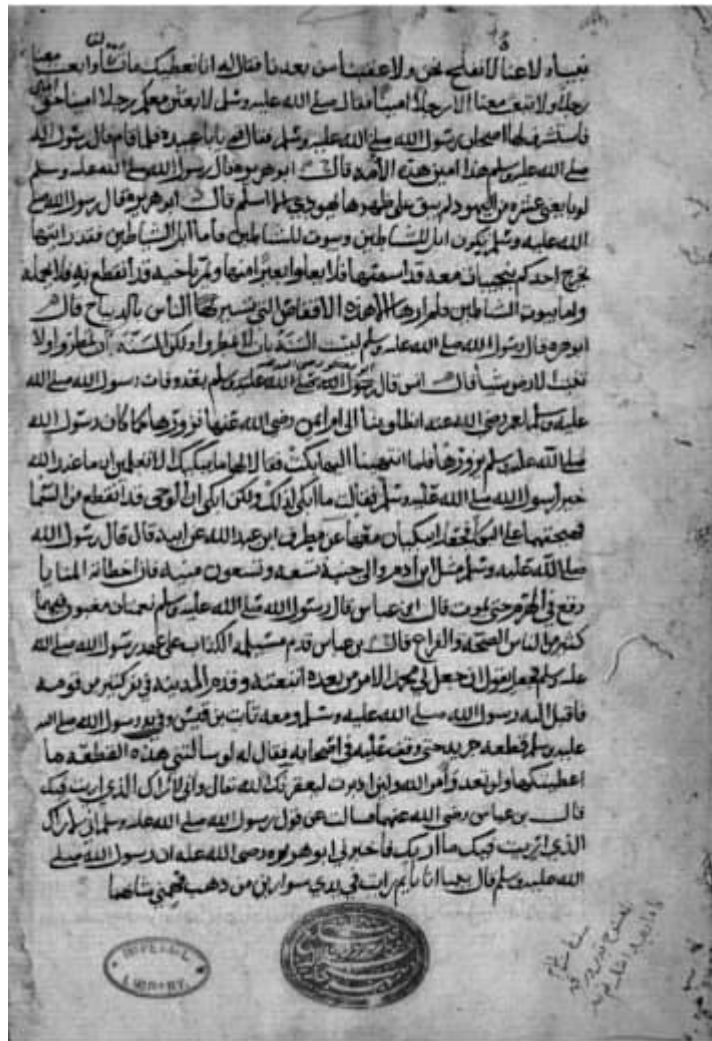 نبيا ولاعنا لا نفلح نحن ولا عقبنا من بعدنا فقال له انا نعطيك ما سألتنا وابعث معنا
رجلا ولا تبعث معنا الا رجلا امينا فقال صلى الله عليه وسلم لابعثن معكم رجلا امينا حق امين
فاستشرف لها اصحاب رسول الله صلى الله عليه وسلم فقال قم يا با عبيدة فلما قام قال رسول الله
صلى الله عليه وسلم هذا امين هذه الامة قال ابو هريرة قال رسول الله صلى الله عليه وسلم
لو بايعني عشرة من اليهود لم يبق على ظهرها يهودي الا اسلم قال ابو هريرة قال رسول الله صلى
الله عليه وسلم يكون ابل للشياطين وبيوت للشياطين فاما ابل الشياطين فقد رايتها
يخرج احدكم بنجيبات معه قد اسمنها فلا يعلوا بعيرا منها ويمر باخيه قد انقطع به فلا يحمله
واما بيوت الشياطين فلم ارها الا هذه الاقفاص التي تستر بها الناس بالديباج قال
ابو هريرة قال رسول الله صلى الله عليه وسلم ليست السنة بان لا تمطروا ولكن السنة ان تمطروا ولا
تنبت الارض شيأ قال انس قال رسول الله صلى الله عليه وسلم بعد وفات رسول الله صلى الله
عليه وسلم لعمر رضي الله عنه انطلق بنا الى ام ايمن رضي الله عنها نزورها كما كان رسول الله
صلى الله عليه وسلم يزورها فلما انتهينا اليها بكت فقالا لها ما يبكيك لا تعلمين ان ما عند الله
خير لرسول الله صلى الله عليه وسلم فقالت ما ابكي لذلك ولكن ابكي ان الوحي قد انقطع من السما
فهيجتهما على البكا فجعلا يبكيان معها عن مطرف ابن عبد الله عن ابيه قال قال رسول الله
صلى الله عليه وسلم مثل ابن ادم والى جنبه تسعة وتسعون منية فان اخطاته المنايا
وقع في الهرم حتى يموت قال ابن عباس قال رسول الله صلى الله عليه وسلم نعمتان مغبون فيهما
كثير من الناس الصحة والفراغ قال بن عباس قدم مسيلمة الكذاب على عهد رسول الله صلى الله
عليه وسلم فجعل يقول ان جعل لي محمد الامر من بعده اتبعته وقدم المدينة في بشر كثير من قومه
فاقبل اليه رسول الله صلى الله عليه وسلم ومعه ثابت بن قيس وفي يد رسول الله صلى الله
عليه وسلم قطعة جريد حتى وقف عليه في اصحابه فقال له لو سالتني هذه القطعة ما
اعطيتكها ولن تعد وامر الله ولئن ادبرت ليعقرنك الله تعالى واني لاراك الذي اريت فيك
قال بن عباس رضي الله عنهما فسالت عن قول رسول الله صلى الله عليه وسلم اني اراك
الذي اريت فيك ما اريت فاخبرني ابو هريرة رضي الله عنه ان رسول الله صلى
الله عليه وسلم قال بينما انا نايم رايت في يدي سوارين من ذهب فهمني شانهما
IMPERIAL
LIBRARY